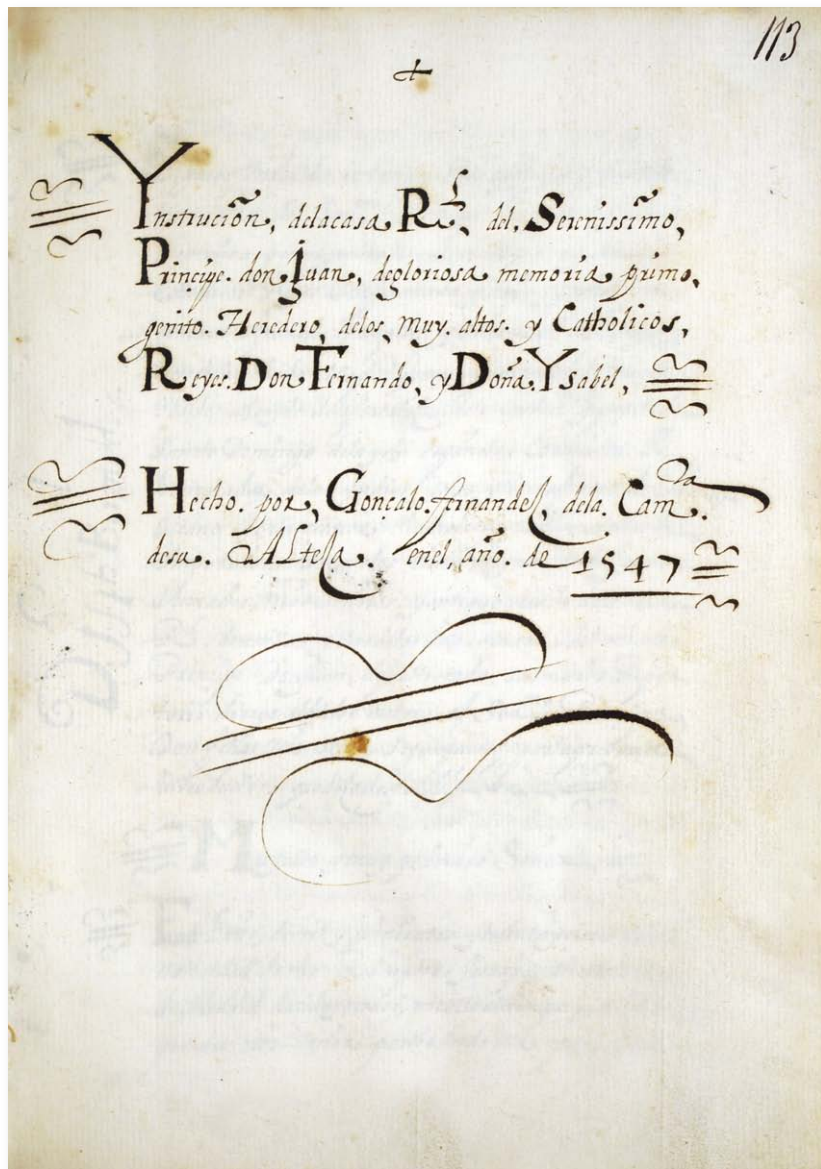 113
Ynstrucion, delacasa Rl, del, Serenissimo,
Principe. don Juan, degloriosa memoria primo,
genito. Heredero, delos, muy. altos. y Catholicos,
Reyes. Don Fernando, y Doña. Ysabel,
Hecho. por, Goncalo. fernandes, dela. Camra.
desu. Altesa. enel, año. de 1547